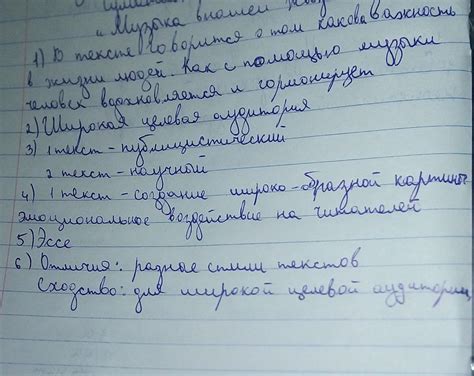 "Музыка в нашей
1) В тексте говорится о том какова важность
в жизни людей. Как с помощью музыки
человек вдохновляется и гормонирует
2) Широкая целевая аудитория
3) 1 текст - публицистический
2 текст - научный
4) 1 текст - создание широко-образной картины
эмоциональное воздействие на читателей
5) Эссе
6) Отличия: разные стили текстов
Сходство: для широкой целевой аудитории